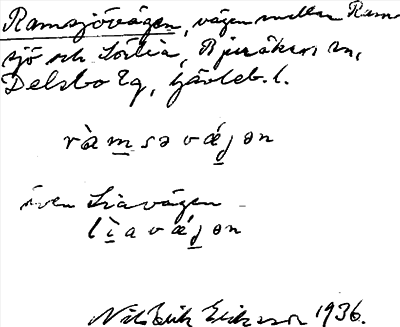 Ramsjövägen, vägen mellan Ram-
sjö och Sörlia, Bjuråkers sn,
Delsbo tg, Gävleb. l.
ràm̲sə vǽj̲ən
även Liavägen
lì̲a vǽj̲ən
Nils Erik Eriksson 1936.